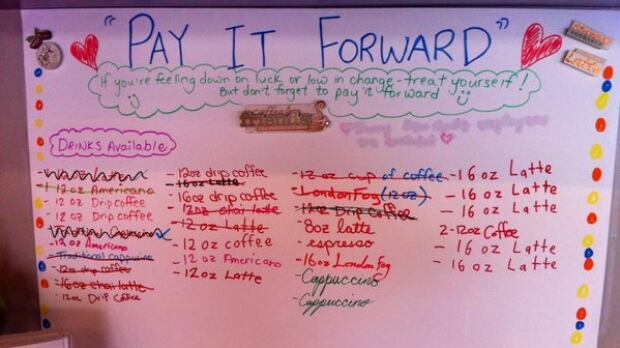 "PAY IT FORWARD"
If you're feeling down on luck or low in change - treat yourself!
But don't forget to pay it forward
friends
DRINKS Available
- 12 oz Americano
- 12 oz Drip coffee
- 12 oz Drip coffee
- 12 oz Americano
- Traditional cappuccino
- 12oz drip coffee
- 16oz chai latte
- 12oz Drip Coffee
- 12oz drip coffee
- 16oz Latte
- 16oz drip coffee
- 12oz chai latte
- 12 oz Latte
- 12 oz coffee
- 12 oz Americano
- 12oz Latte
- 12 oz cup of coffee
- London Fog (12oz)
- 12oz Drip Coffee
- 8oz latte
- espresso
- 16oz London Fog
- Cappuccino
- Cappuccino
- 16 oz Latte
- 16 oz Latte
- 16 oz Latte
2 - 12oz Coffee
- 16 oz Latte
- 16 oz Latte